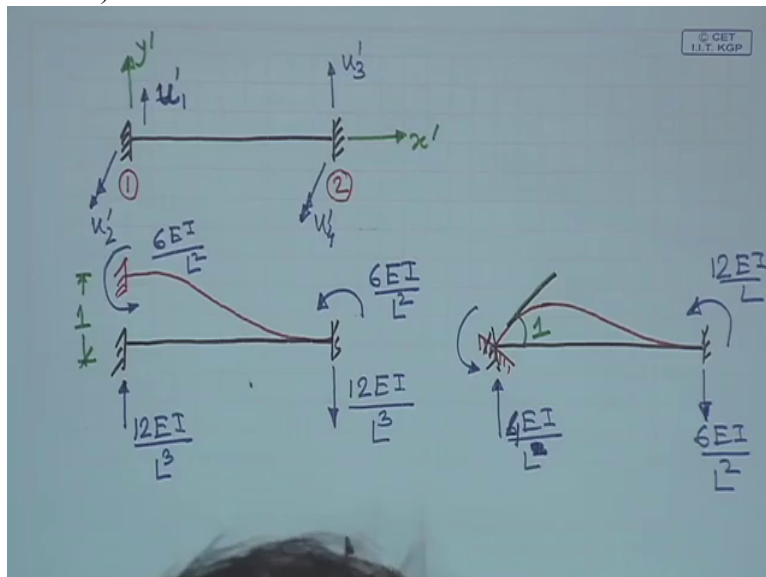 © CET
I.I.T. KGP
y'
u'₁
u'₃
x'
①
②
u'₂
u'₄
6EI/L²
1
6EI/L²
12EI/L³
12EI/L³
12EI/L
1
6EI/L²